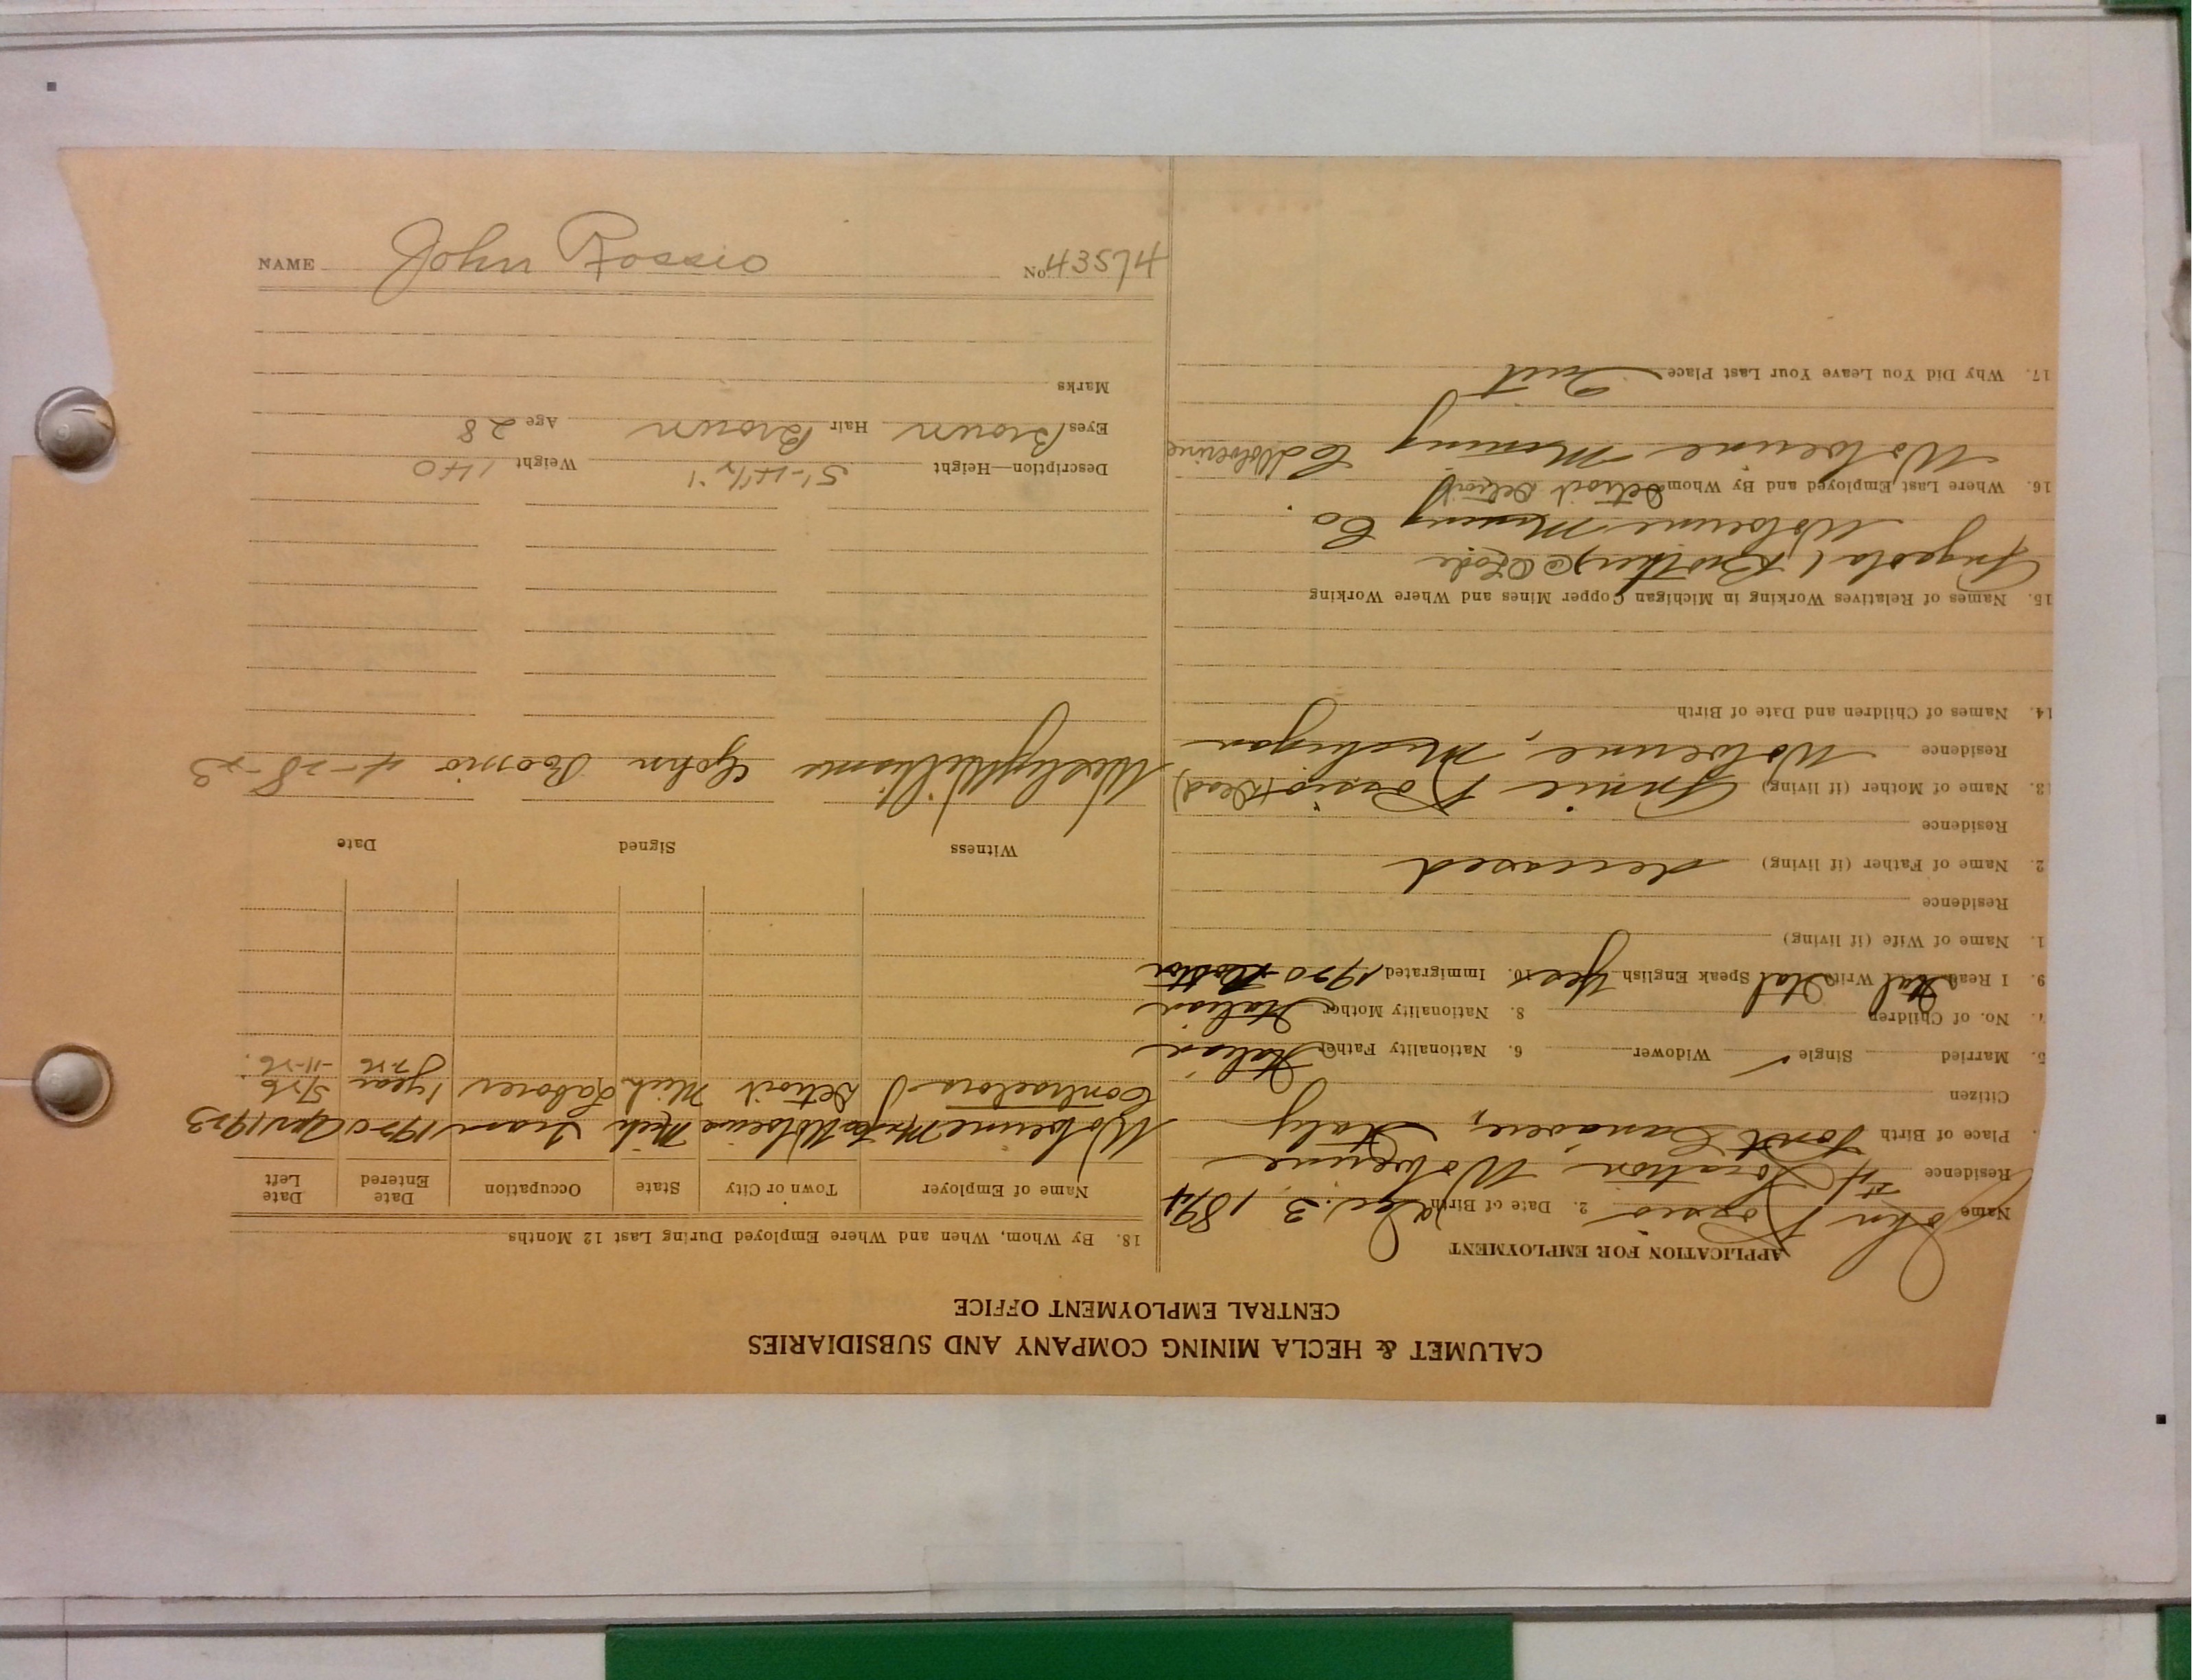 CALUMET & HECLA MINING COMPANY AND SUBSIDIARIES
CENTRAL EMPLOYMENT OFFICE
APPLICATION FOR EMPLOYMENT
Name John Rossio 2. Date of Birth Dec. 3, 1894
Residence #4 Location, Wolverine
Place of Birth Font Canavere, Italy
Citizen
5. Married Single ✓ Widower 6. Nationality Father Italian
7. No. of Children 8. Nationality Mother Italian
9. I Read Ital Write Ital Speak English Yes 10. Immigrated 1920 Boston
1. Name of Wife (if living)
Residence
2. Name of Father (if living) deceased
Residence
13. Name of Mother (if living) Annie Rossio (Dead)
Residence Wolverine, Michigan
14. Names of Children and Date of Birth
15. Names of Relatives Working in Michigan Copper Mines and Where Working
Brother, O Lode
Wolverine Mining Co.
16. Where Last Employed and By Whom Detroit Detroit
Wolverine Mining Co Wolverine
17. Why Did You Leave Your Last Place Quit
18. By Whom, When and Where Employed During Last 12 Months
Name of Employer Town or City State Occupation Date Entered Date Left
Wolverine Wolverine Mich Tram 1920 Apr 1923
Contractors Detroit Mich Laborer 1 year 5/26
7-26 -11-26.
Witness Signed Date
Wesley Williams John Rossio 4-28-23
Description—Height 5'-4 1/2" Weight 140
Eyes Brown Hair Brown Age 28
Marks
NAME John Rossio No. 43574